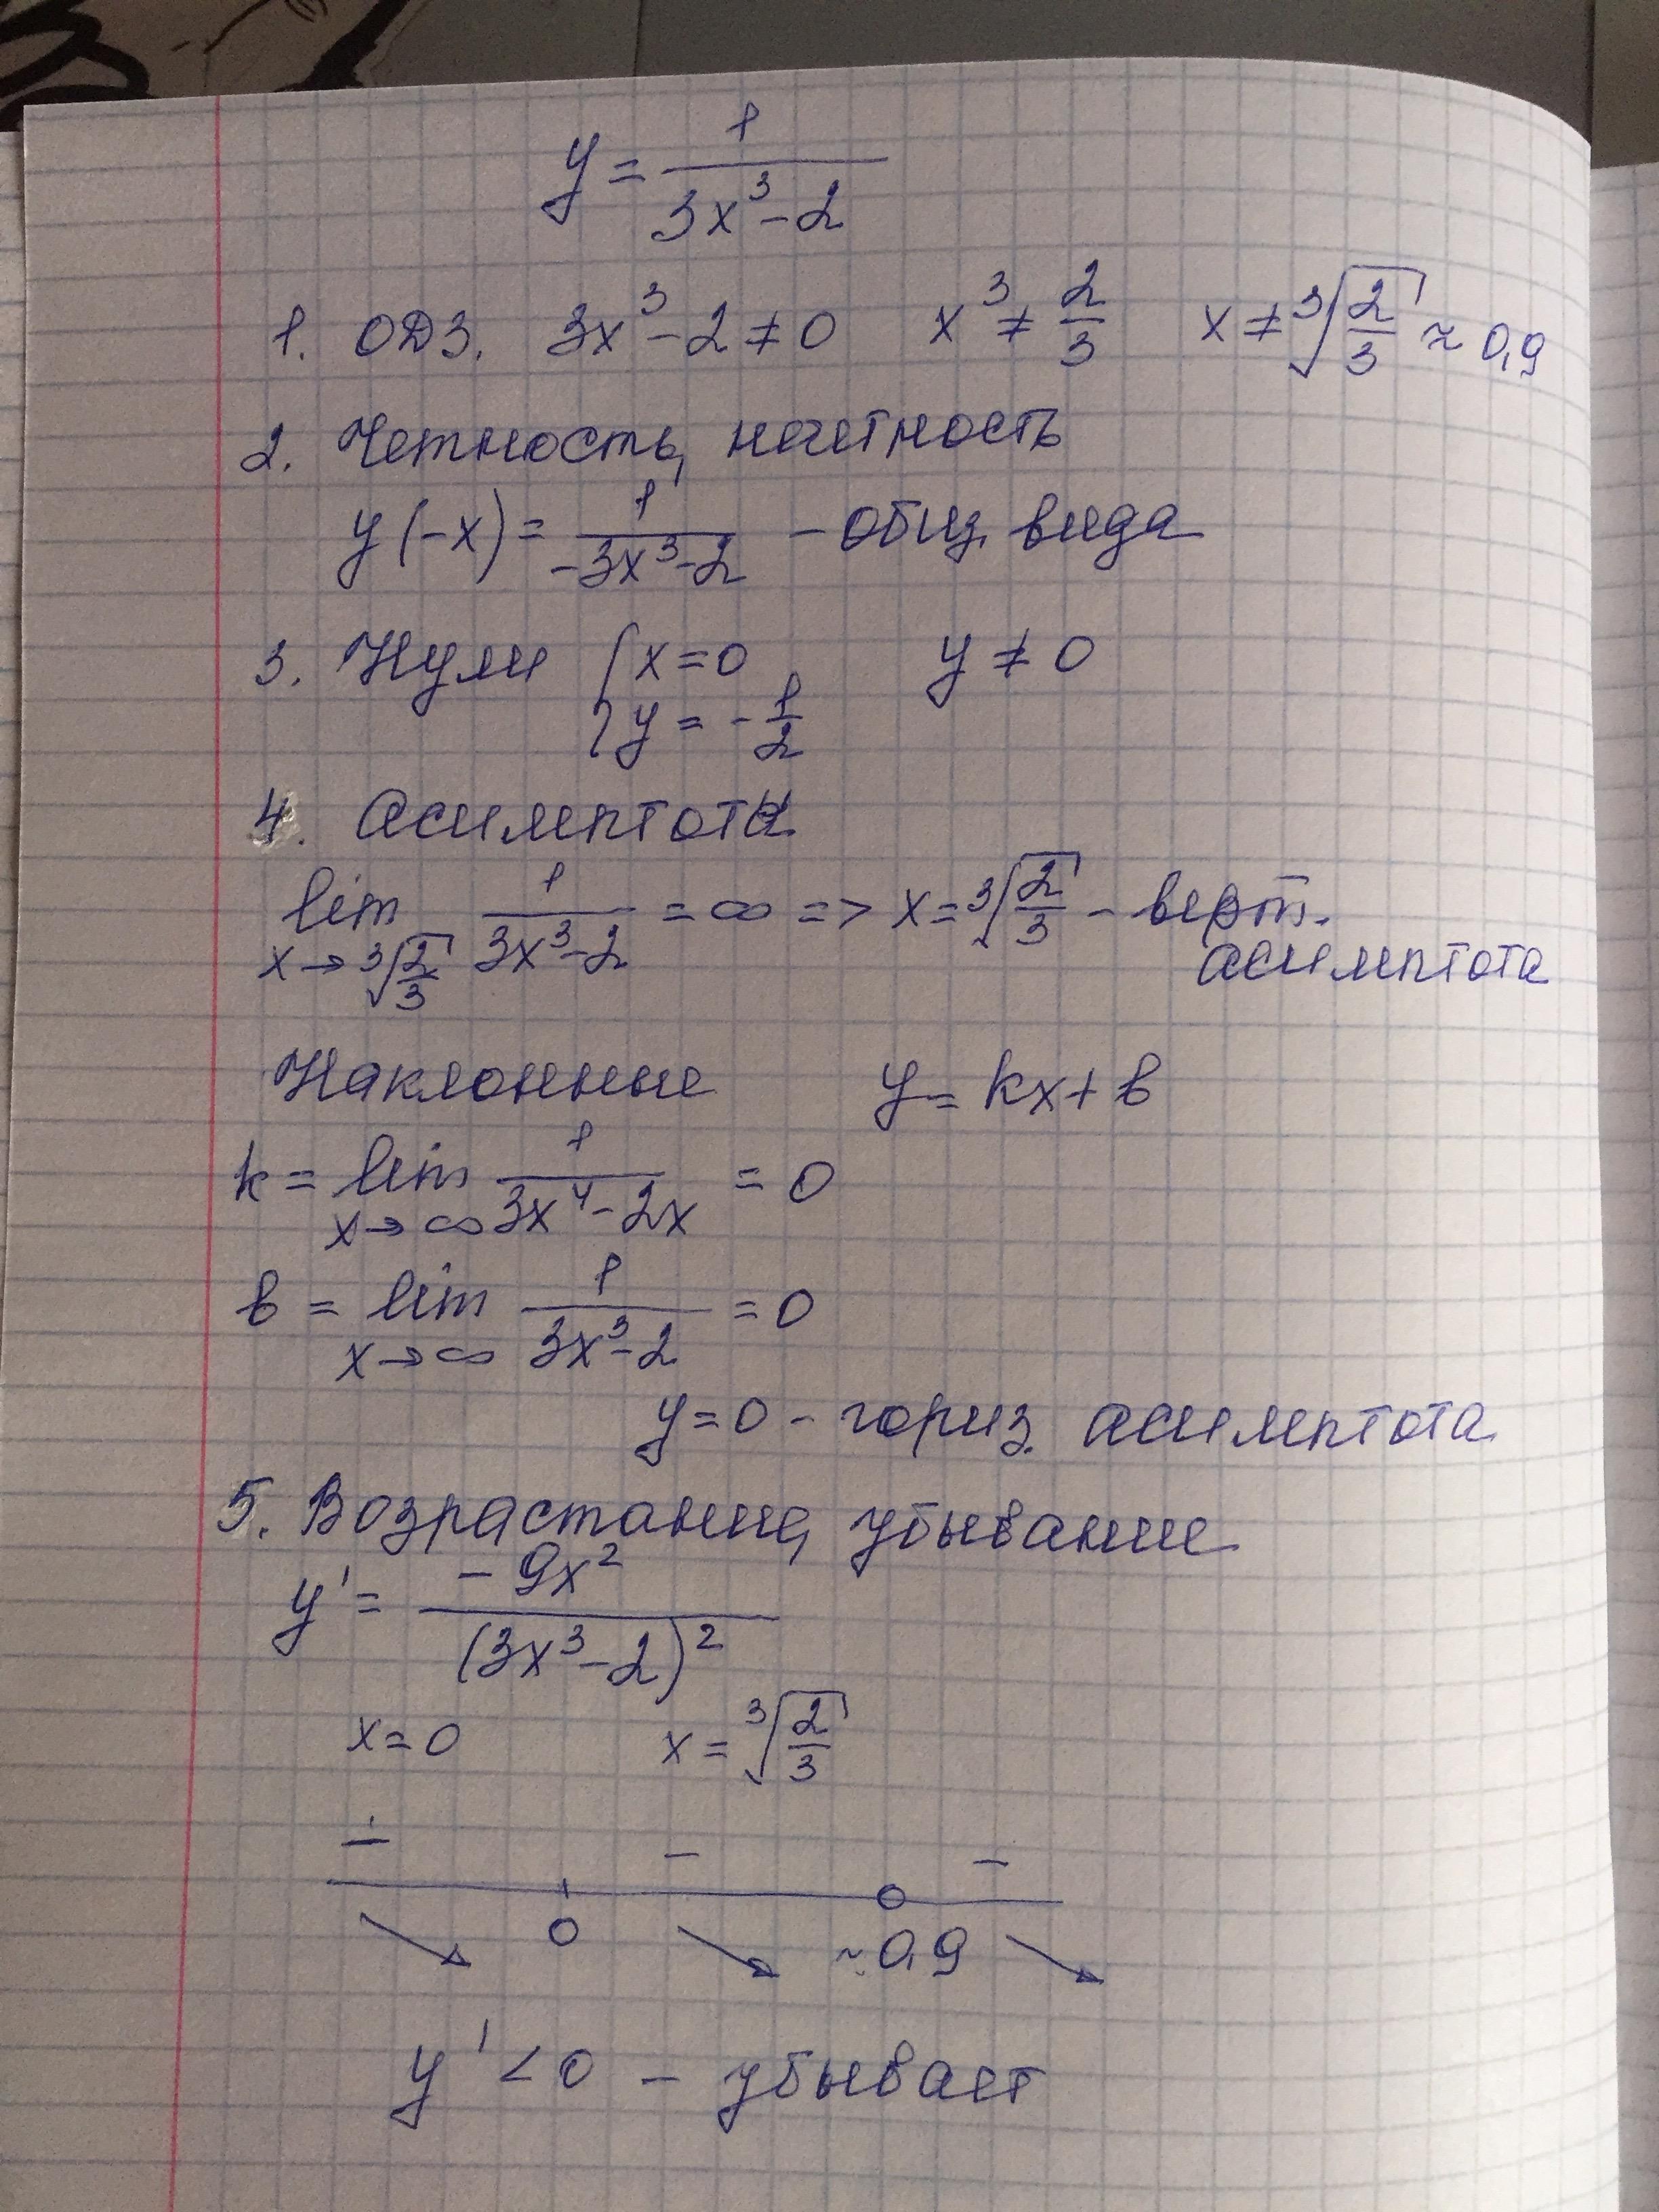 y = 1/(3x³-2)
1. ОДЗ. 3x³-2≠0 x³≠2/3 x≠∛(2/3) ≈ 0,9
2. Четность, нечетность
y(-x) = 1/(-3x³-2) - общ. вида
3. Нули {x=0 y≠0
y=-1/2
4. Асимптоты
lim x→∛(2/3) 1/(3x³-2) = ∞ => x=∛(2/3) - верт.
асимптота
Наклонные y=kx+b
k = lim x→∞ 1/(3x⁴-2x) = 0
b = lim x→∞ 1/(3x³-2) = 0
y=0 - гориз. асимптота
5. Возрастание, убывание
y' = -9x²/(3x³-2)²
x=0 x=∛(2/3)
- - -
0 ~0,9
y' < 0 - убывает